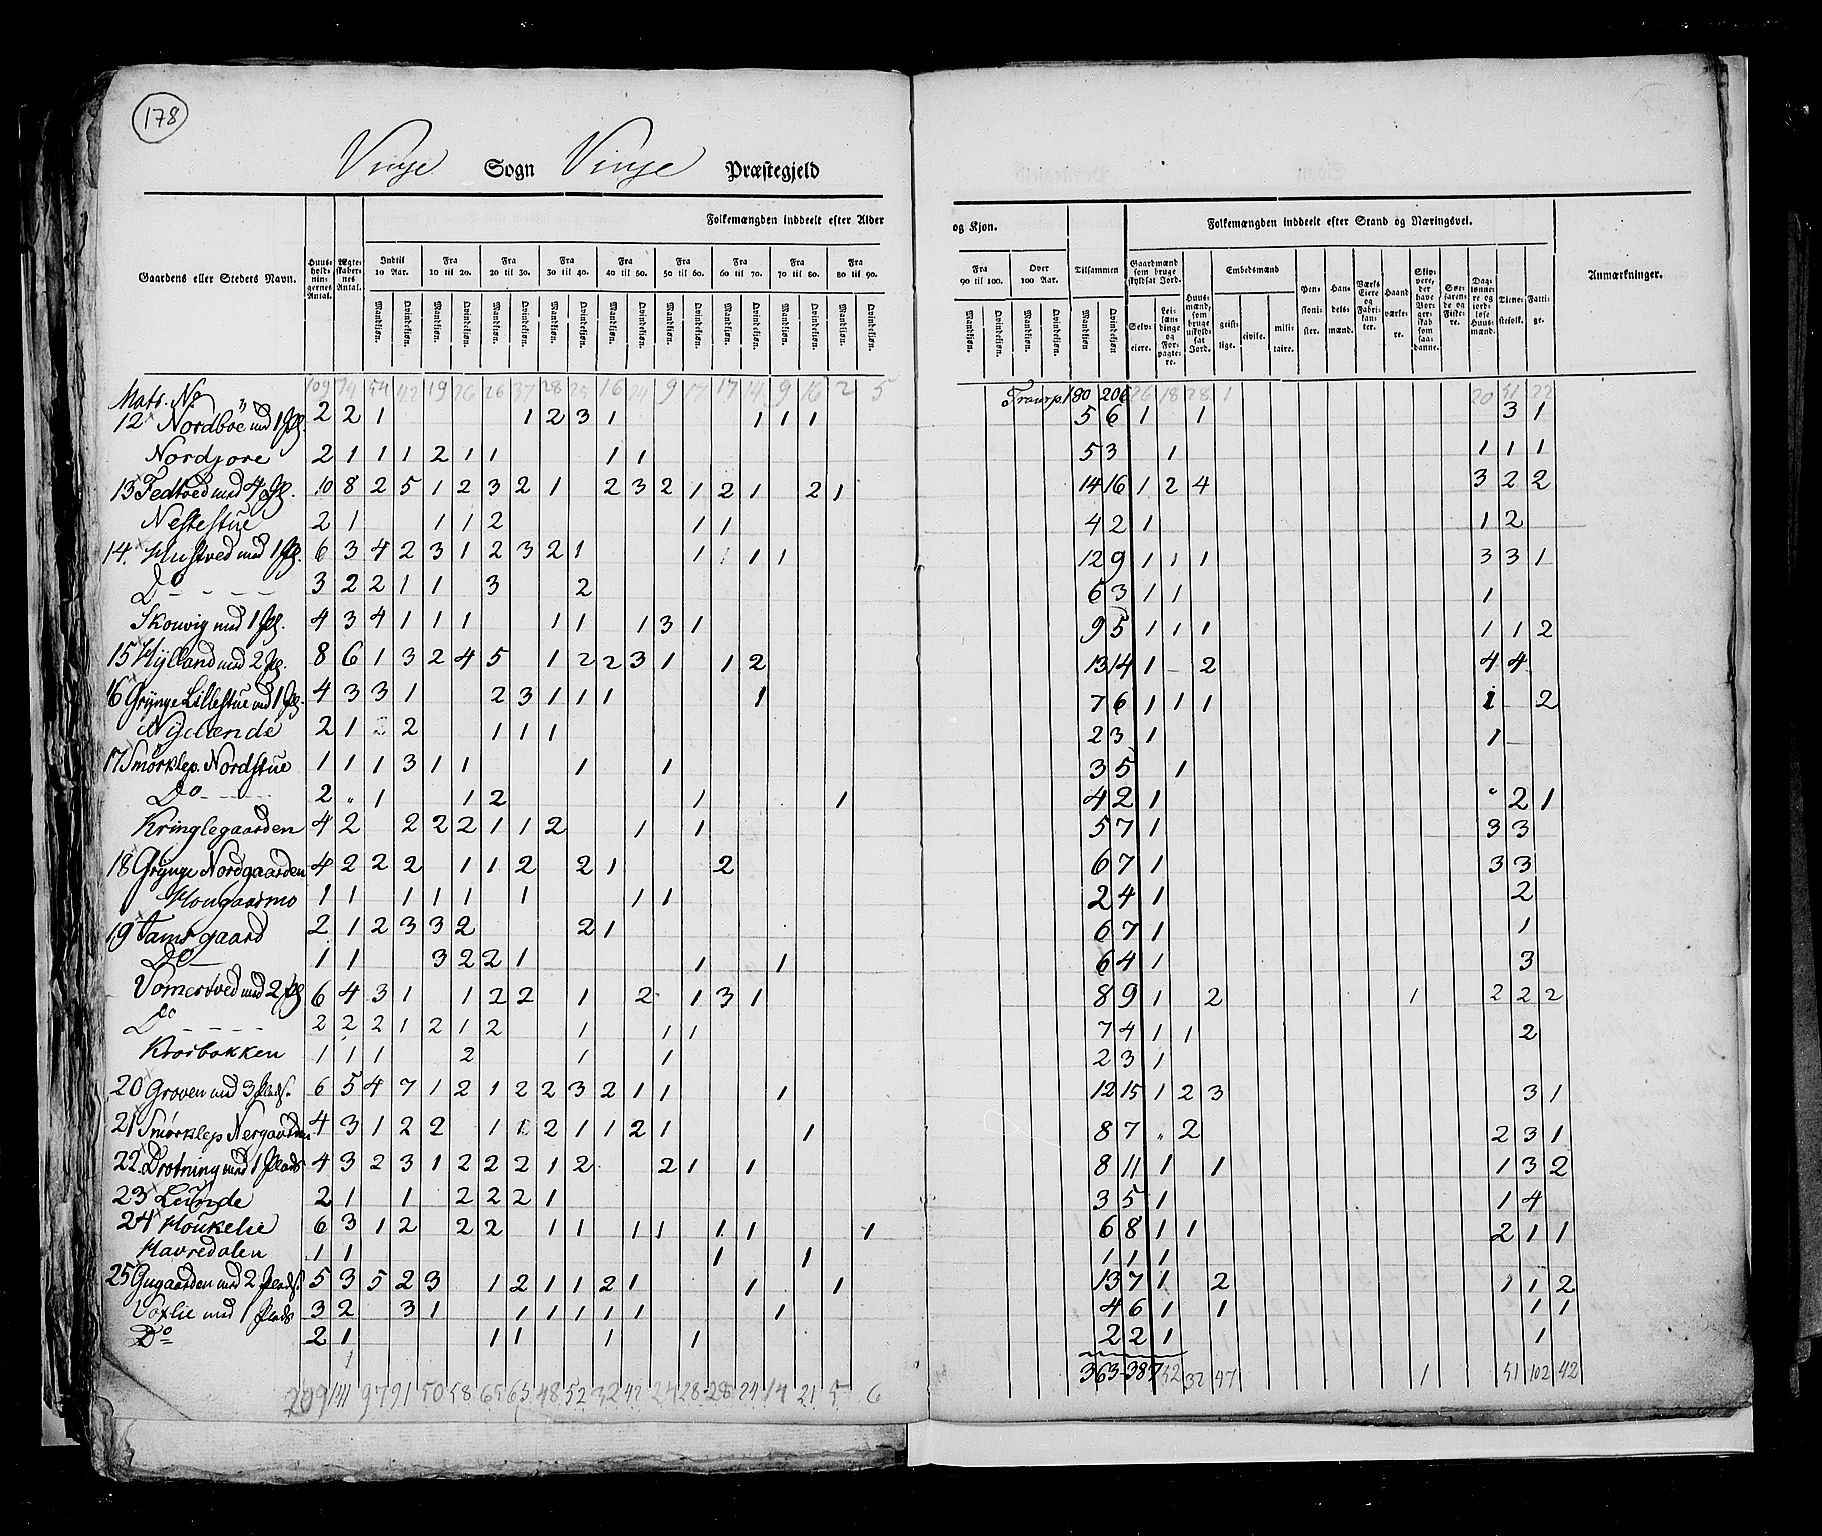 178
Vinje Sogn Vinje Præstegjeld
Folkemængden inddeelt efter Alder og Kjøn.
Folkemængden inddeelt efter Stand og Næringsvei.
Gaardens eller Steders Navn.
Huusholdningernes Antal.
Ægteskabernes Antal.
Indtil 10 Aar.
Fra 10 til 20.
Fra 20 til 30.
Fra 30 til 40.
Fra 40 til 50.
Fra 50 til 60.
Fra 60 til 70.
Fra 70 til 80.
Fra 80 til 90.
Fra 90 til 100.
Over 100 Aar.
Tilsammen
Mandkjøn. Qvindekjøn.
Gaardmænd som bruge skyldsat Jord.
Selveiere.
Leilændinge og Forpagtere.
Huusmænd, som bruge uskyldsat Jord.
Embedsmænd
geistlige. civile. militaire.
Pensionister.
Handelsmænd.
Værks Eiere og Fabrikanter.
Haandværkere.
Skippere, der have Borgerskab som saadanne.
Søefarende og Fiskere.
Daglønnere og jordløse Huusmænd.
Tienestefolk.
Fattige.
Anmærkninger.
Matr. No. 109 74 54 42 19 26 26 37 28 25 16 24 9 17 17 14 9 16 2 5 Transp. 180 206 26 18 28 1 20 51 22
12 Nordbøe med 1 Pl. 2 2 1 1 2 3 1 1 1 1 5 6 1 1 3 1
Nordjore 2 1 1 1 2 1 1 1 1 5 3 1 1 1 1
13 Fedtved med 4 Pl. 10 8 2 5 1 2 3 2 1 2 3 2 1 2 1 2 1 14 16 1 2 4 3 2 2
Nestestue 2 1 1 1 2 1 1 4 2 1 1 2
14. Hustved med 1 Pl. 6 3 4 2 3 1 2 3 2 1 1 1 1 12 9 1 1 1 3 3 1
Do 3 2 2 1 1 3 2 6 3 1 1 1
Skouvig med 1 Pl. 4 3 4 1 1 1 1 1 1 3 1 9 5 1 1 1 1 1 2
15 Hylland med 2 Pl. 8 6 1 3 2 4 5 1 2 2 3 1 1 2 13 14 1 2 4 4
16 Grynge Lillestue med 1 Pl. 4 3 3 1 2 3 1 1 1 1 7 6 1 1 1 1 2
Nylænde 2 1 2 2 1 1 1 2 3 1 1
17 Smørklep. Nordstue 1 1 1 3 1 1 1 1 3 5 1
Do 2 " 1 1 2 1 1 4 2 1 2 1
Kringlegaarden 4 2 2 2 2 1 1 2 1 1 5 7 1 3 3
18 Grynge Nordgaarden 4 2 2 2 1 1 2 2 1 2 6 7 1 3 3
Hougaarmo 1 1 1 1 1 1 1 1 2 4 1 2
19 Tamsgaard 2 1 2 3 3 2 2 1 6 7 1 1
Do 1 1 3 2 2 1 1 1 6 4 1 3
Vomertved med 2 Pl 6 4 3 1 1 2 2 1 2 1 3 1 8 9 1 2 1 2 2 2
Do 2 2 2 1 2 1 2 1 1 1 7 4 1 1 2
Krosbakken 1 1 1 2 1 1 2 3 1
20 Groven med 3 Plads. 6 5 4 7 1 2 1 2 2 3 2 1 1 1 12 15 1 2 3 3 1
21 Smørklep Nergaarden 4 3 1 2 2 1 1 2 1 1 2 1 1 8 7 " 2 2 3 1
22. Drotning med 1 Plads 4 3 2 3 1 2 2 2 1 2 2 1 1 8 11 1 1 1 3 2
23 Lunde 2 1 1 2 2 2 1 3 5 1 1 4
24 Houkelie 6 3 1 2 2 2 1 1 1 1 1 1 1 6 8 1 1 2 1 1
Havredalen 1 1 1 1 1 1 1
25 Gugaarden med 2 Plads. 5 3 5 2 3 1 2 1 1 2 1 1 1 13 7 1 2 1 1 2
Voxlie med 1 Plads 3 2 3 1 1 1 1 1 1 1 4 6 1 1 1 1
Do 2 1 1 1 1 1 2 2 1 1
209 141 97 91 50 58 65 63 48 52 32 42 24 28 28 24 14 21 5 6 363 387 52 32 47 1 51 102 42